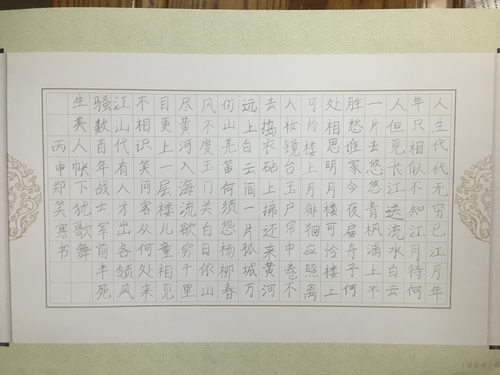 人生代代无穷已江月年
年只相似不知江月待何
人但见长江送流水白云
一片去悠悠青枫浦上不
胜愁谁家今夜扁舟子何
处相思明月楼可怜楼上
可怜楼上月徘徊应照离
人妆镜台玉户帘中卷不
去捣衣砧上拂还来黄河
远上白云间一片孤城万
仞山羌笛何须怨杨柳春
风不度玉门关白日依山
尽黄河入海流欲穷千里
目更上一层楼儿童相见
不相识笑问客从何处来
江山代有人才出各领风
骚数百年战士军前半死
生美人帐下犹歌舞
丙申郑笑寒书